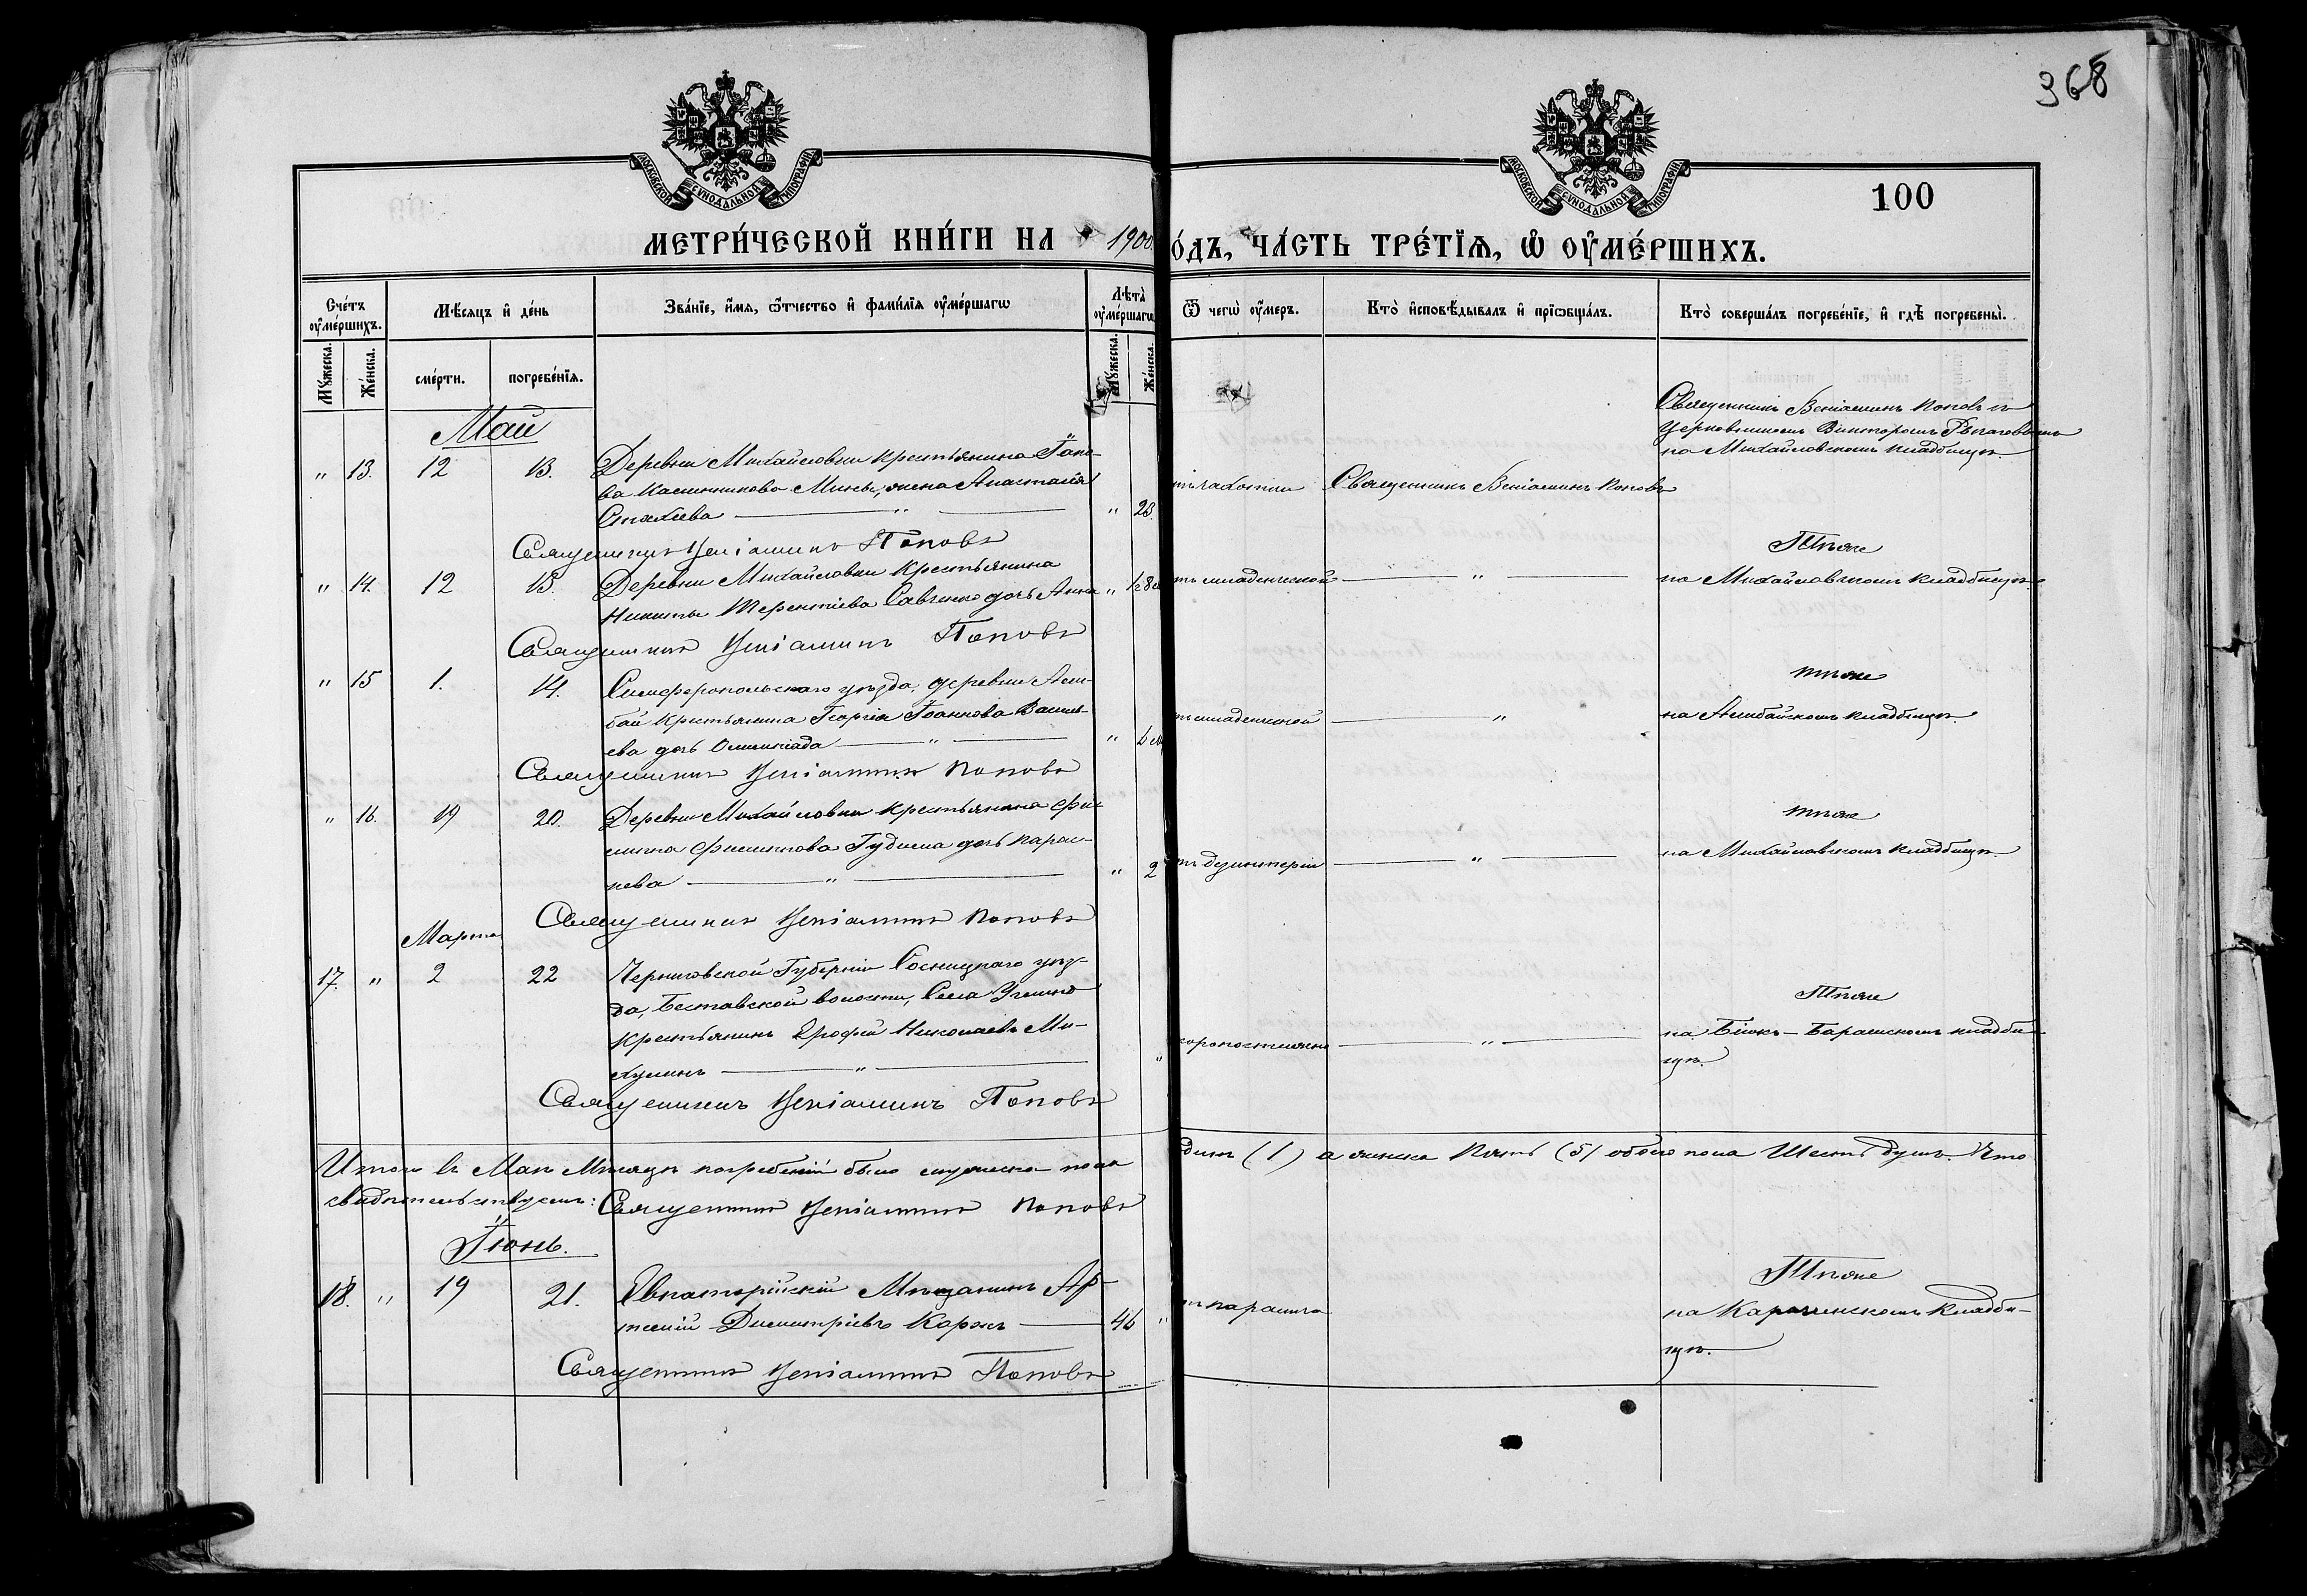 368
МОСКОВСКОЙ СѴНОДАЛЬНОЙ ТИПОГРАФІИ
МОСКОВСКОЙ СѴНОДАЛЬНОЙ ТИПОГРАФІИ
100
МЕТРИ́ЧЕСКОЙ КНИ́ГИ НА 1900
О́ДЪ, ЧА́СТЬ ТРЕ́ТЇѦ, Ѡ҆ ОУ҆МЕ́РШИХЪ.
Сче́тъ оу҆ме́ршихъ.
Мѣ́сѧцъ и҆ де́нь
Зва́нїе, и҆́мѧ, ѻ҆́тчество и҆ фами́лїѧ оу҆ме́ршагѡ
Лѣта̀ оу҆ме́ршагѡ
Ѿ чегѡ̀ оу҆́меръ.
Кто̀ и҆сповѣ́дывалъ и҆ прїѻбща́лъ.
Кто̀ соверша́лъ погребе́нїе, и҆ гдѣ̀ погребены̀.
Мꙋ́жеска.
Же́нска.
сме́рти.
погребе́нїѧ.
Мꙋ́жеска.
Же́нска.
Май
Священникъ Веніаминъ Поповъ съ
на Михайловскомъ кладбищѣ.
" 13. 12 13. Деревни Михайловки крестьянина Іако-
ва Калинникова Мины, жена Анастасія
" 23. тъ чахотки Священникъ Веніаминъ Поповъ
Священникъ Веніаминъ Поповъ
Тѣже
" 14. 12 13. Деревни Михайловки крестьянина
Никиты Терентіева Савченко дочь Анна "
тъ младенческой " на Михайловскомъ кладбищѣ.
Священникъ Веніаминъ Поповъ
тѣже
" 15 1. 14. Симферопольскаго уѣзда, деревни Аши-
бай крестьянина Георгія Іоаннова Василь-
ева дочь Олимпіада "
" тъ младенческой " на Ашибайскомъ кладбищѣ.
Священникъ Веніаминъ Поповъ
тѣже
" 16. 19 20. Деревни Михайловки крестьянина Фи-
липпа Филиппова Гудима дочь Парас-
кева " " 2
тъ дезинтеріи " на Михайловскомъ кладбищѣ.
Священникъ Веніаминъ Поповъ
Марта
17. " 2 22 Черниговской Губерніи Сосницкаго уѣз-
да, волости, Села
крестьянинъ Ерофій Николаевъ Ми-
хулинъ " "
Тѣже
скоропостижно " на Біюкъ-Барашскомъ кладби-
щѣ.
Священникъ Веніаминъ Поповъ
Итого въ Маѣ Мѣсяцѣ погребеній было мужеска пола
динъ (1) а женска Пять (5) обоего пола Шесть душъ. Что
свидѣтельствуемъ: Священникъ Веніаминъ Поповъ
Іюнь.
Тѣже
18. " 19 21. Евпаторійскій Мѣщанинъ Ар-
темій Димитріевъ Коржъ 46 "
тъ паралича
на Карачинскомъ кладби-
щѣ.
Священникъ Веніаминъ Поповъ